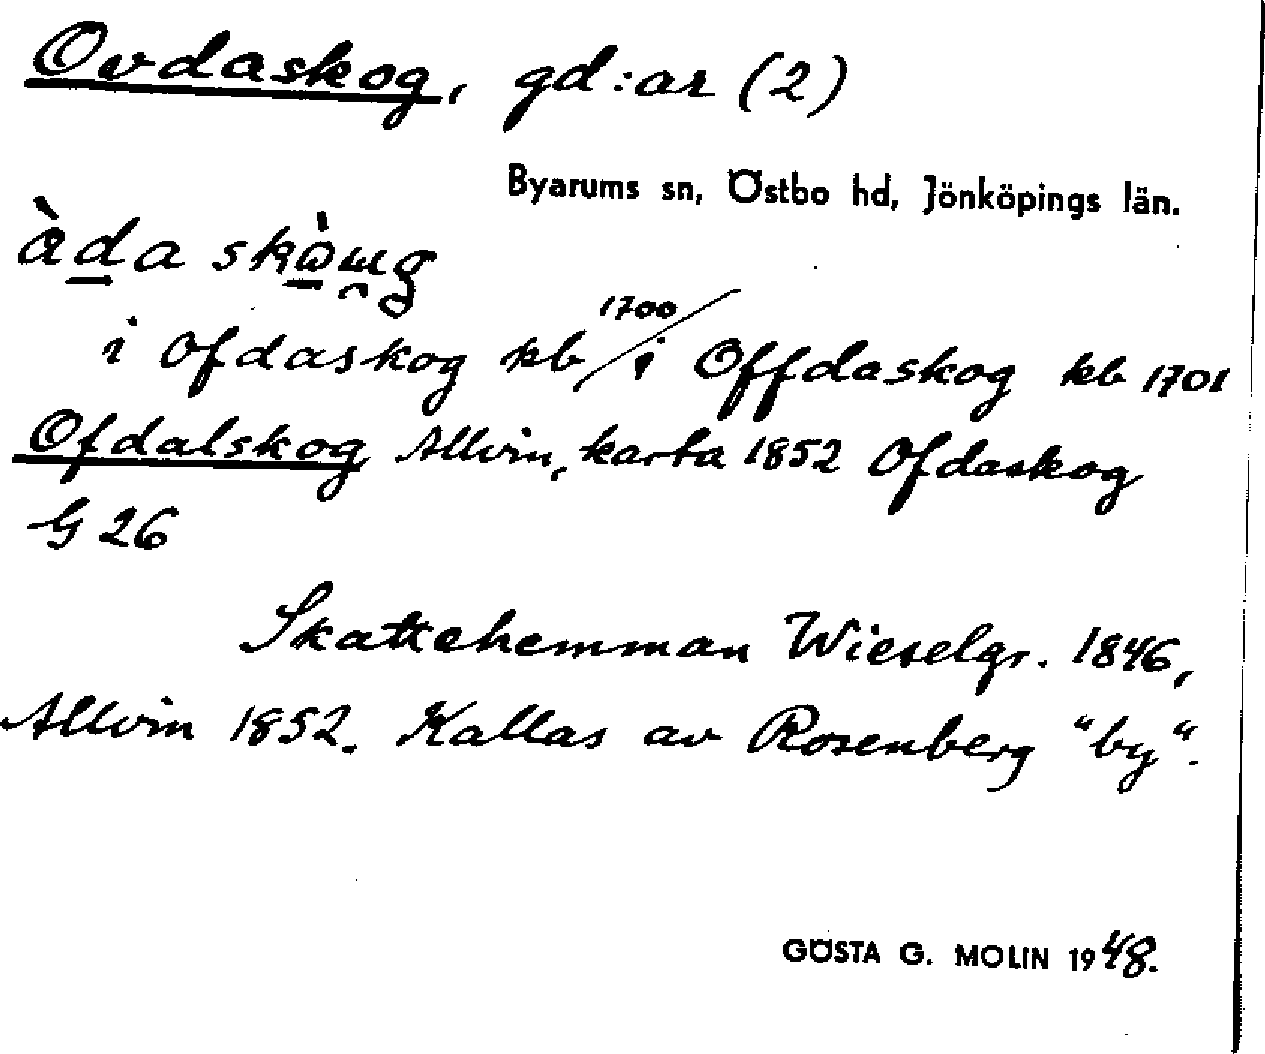 Ovdaskog, gd:ar (2)
Byarums sn, Östbo hd, Jönköpings län.
i Ofdaskog kb 1700/ i Offdaskog kb 1701
Ofdalskog Allvin, karta 1852 Ofdaskog
G 26
Skattehemman Wieselgr. 1846,
Allvin 1852. Kallas av Rosenberg "by".
GÖSTA G. MOLIN 1948.